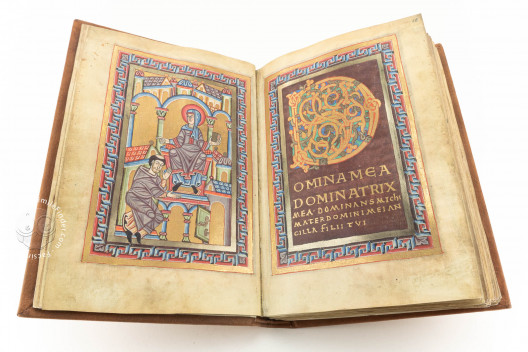 D
OMINA MEA
DOMINATRIX
MEA · DOMINANS MICHI
MATER DOMINI MEI AN
CILLA FILII TVI